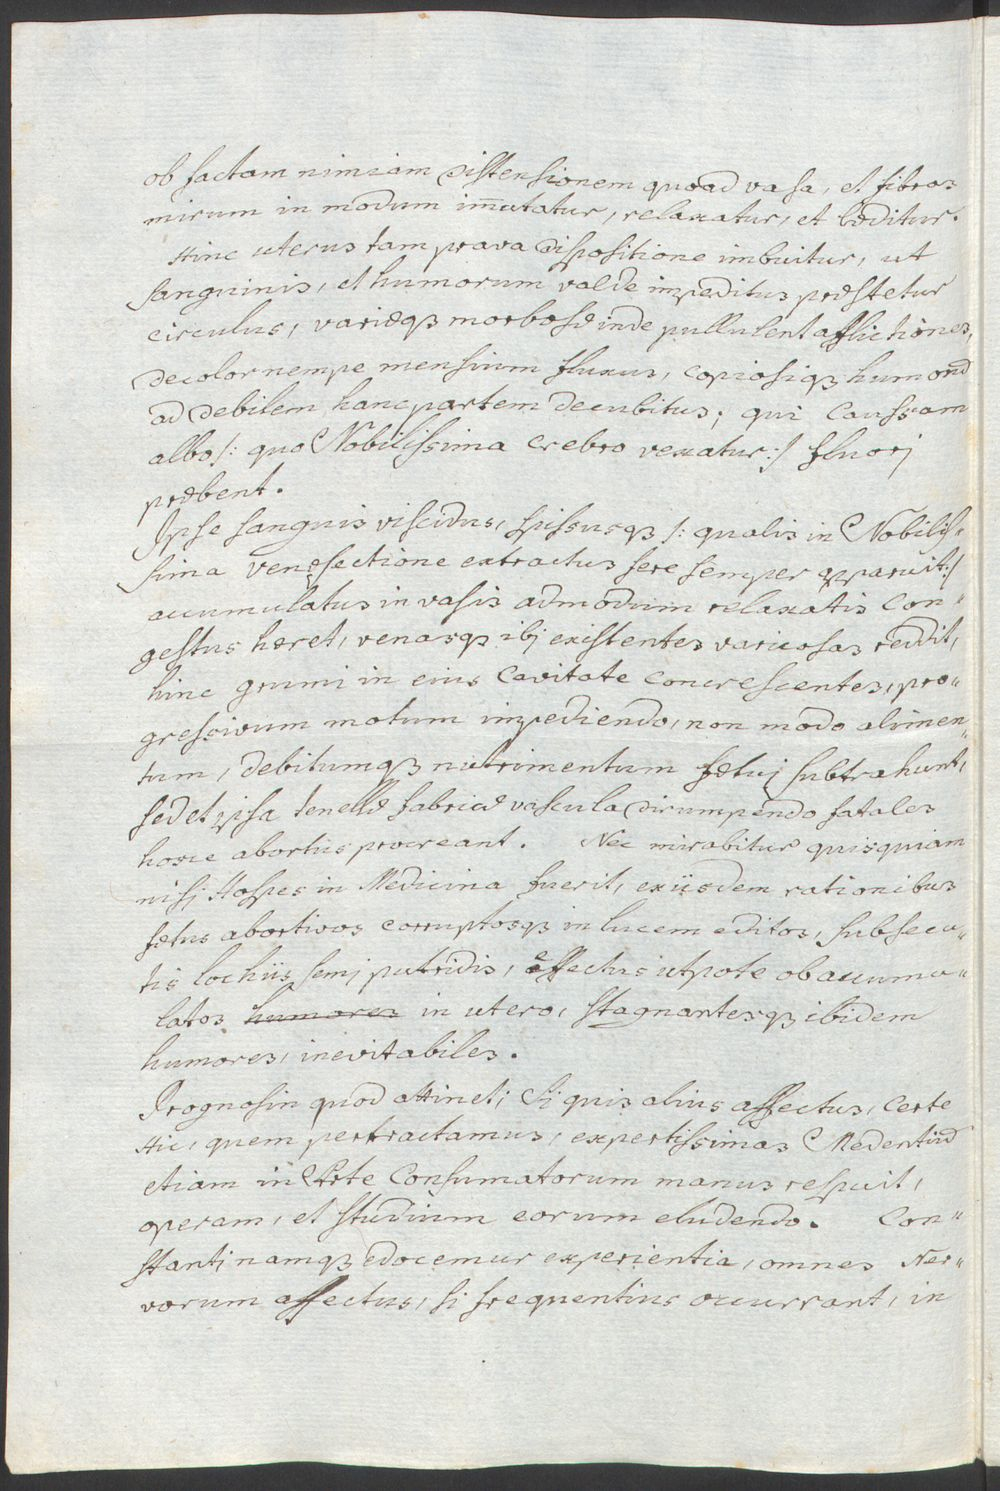 ob factam nimiam distensionem quoad vasa, et fibras
mirum in modum im̄utatur, relaxatur, et læditur.
Hinc uterus tam prava dispositione imbuitur, ut
sanguinis, et humorum valde impeditus præstetur
circulus, variæqȝ morbosæ inde pullulent afflictiones,
decolor nempe mensium fluxus, copiosiqȝ humorū
ad debilem hanc partem decubitus; qui caussam
albo /: quo Nobilissima crebro vexatur :/ fluorj
præbent.
Ipse sanguis viscidus, spissusqȝ /: qualis in Nobilis„
sima venæsectione extractus fere semper apparuit :/
accumulatus in vasis admodum relaxatis con„
gestus hæret, venasqȝ ibj existentes varicosas reddit,
hinc grumi in eius cavitate concrescentes, pro„
gressivum motum impediendo, non modo alimen„
tum, debitumqȝ nutrimentum fætuj subtrahunt,
sed et ipsa tenellæ fabricæ vascula dirumpendo fatales
hosce abortus procreant. Nec mirabitur quisquam
nisj Hospes in Medicina fuerit, exiisdem rationibus
fætus abortivos corruptosqȝ in lucem editos, subsecu„
tis lochiis semj putridis, effectus utpote ob accumu„
latos humores in utero, stagnantesqȝ ibidem
humores, inevitabiles.
Prognosin quod attinet; Si quis alius affectus, certe
Hic, quem pertractamus, expertissimas Medentiū
etiam in Arte Consumatorum manus respuit,
operam, et studium eorum eludendo. Con„
stanti namqȝ edocemur experientia, omnes Ner„
vorum affectus, si frequentius occurrant, in